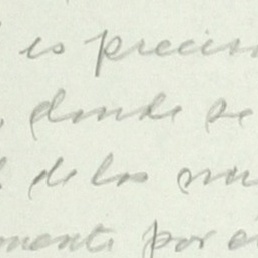 es precis
donde se
de los
mente por